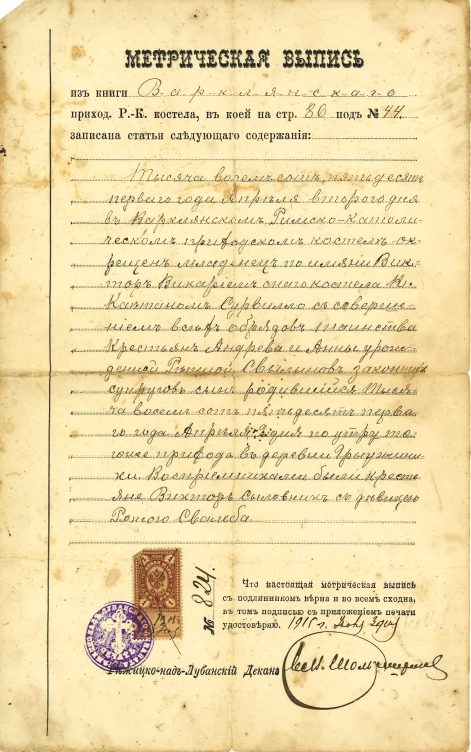 МЕТРИЧЕСКАЯ ВЫПИСЬ
изъ книги Варклянскаго
приход. Р.-К. костела, въ коей на стр. 86 подъ № 44.
записана статья слѣдующаго содержанія:
Тысяча восемъ сотъ, пятьдесятъ
перваго года Апрѣля втораго дня
въ Варклянскомъ Римско-Католи-
ческомъ приходскомъ костелѣ ок-
рещенъ младенецъ по имяни Вик-
торъ Викаріемъ онаго костела К.
Каэтаномъ Сурвилло съ соверше-
ніемъ всѣхъ обрядовъ таинства
Крестьянъ Андрея и Анны урож-
денной законныхъ
супруговъ сынъ родившійся Тыся-
ча восемъ сотъ пятьдесятъ перва-
го года Апрѣля дня по утру то-
гоже прихода въ деревни
Воспріемниками были кресть-
яне Викторъ съ дѣвицею
№ 824
Что настоящая метрическая выпись
съ подлинникомъ вѣрна и во всемъ сходна,
въ томъ подписью съ приложеніемъ печати
удостовѣряю. 191 г.
Рѣжицко-надъ-Лубанскій Деканъ